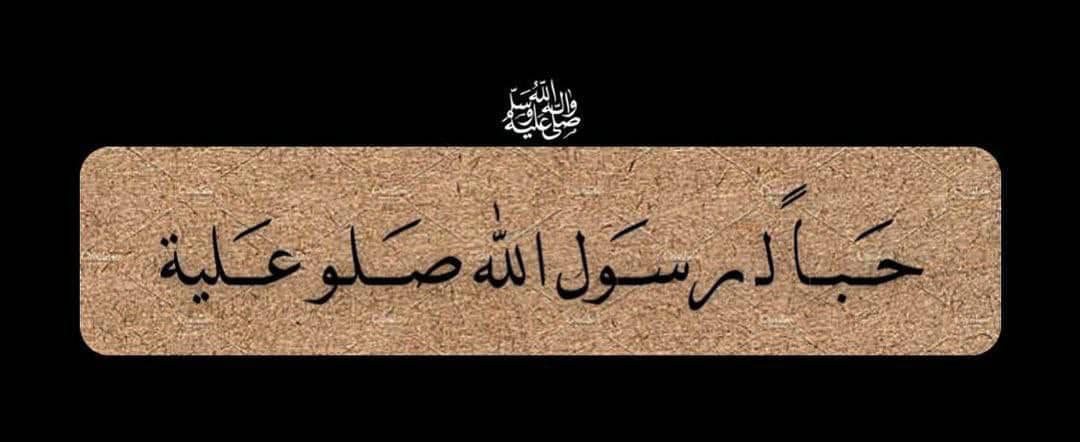 صلى الله عليه وآله وسلم
حَـبـاً لـ رسـَول الله صَـلـو عَـليـة